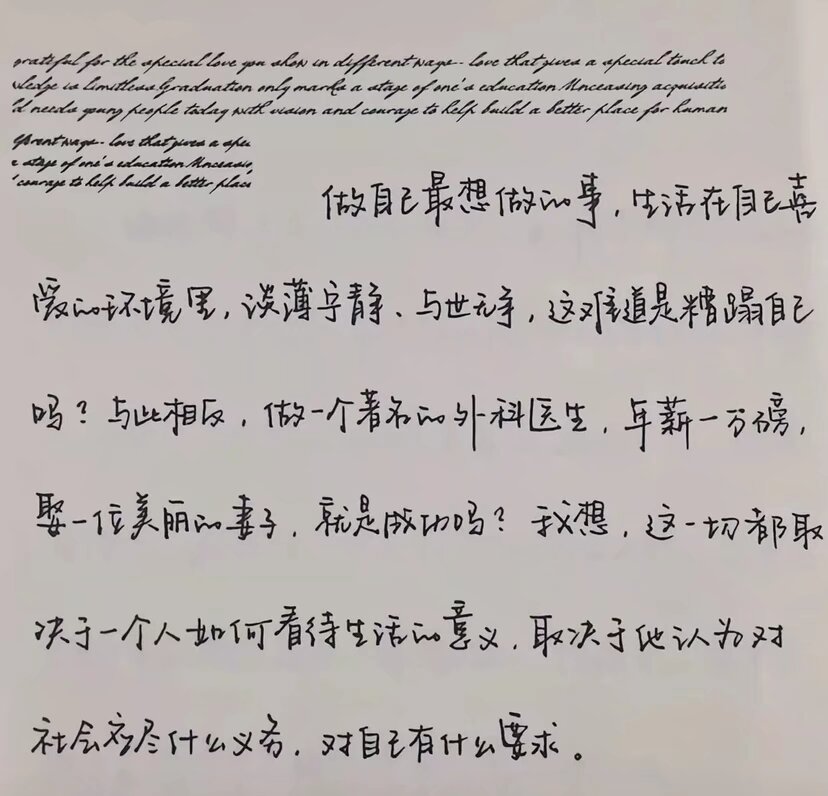 grateful for the special love you show in different ways - love that gives a special touch to
ledge is limitless Graduation only marks a stage of one's education Unceasing acquisitio
ld needs young people today with vision and courage to help build a better place for human
fferent ways - love that gives a spec
a stage of one's education Unceasin
courage to help build a better place
做自己最想做的事，生活在自己喜
爱的环境里，淡薄宁静、与世无争，这难道是糟蹋自己
吗？与此相反，做一个著名的外科医生，年薪一万磅，
娶一位美丽的妻子，就是成功吗？我想，这一切都取
决于一个人如何看待生活的意义，取决于他认为对
社会应尽什么义务，对自己有什么要求。